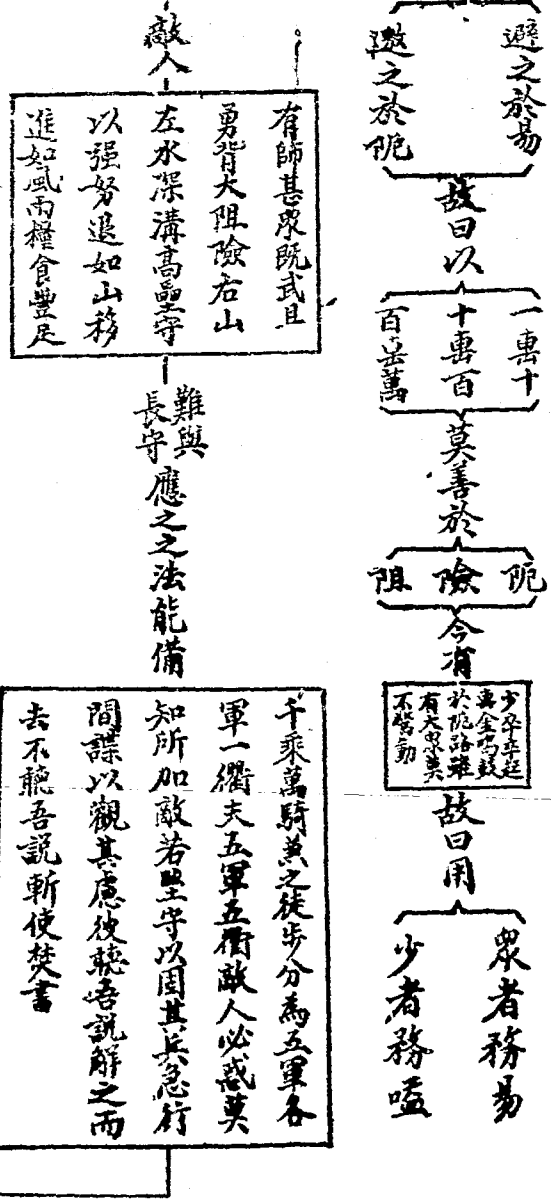 避之於易
邀之於阨
故曰以
一擊十
十擊百
百擊萬
莫善於
阨
險
阻
今有
少卒卒起
擊金鳴鼓
於阨路雖
有大眾莫
不驚動
故曰用
眾者務易
少者務隘
敵人
有師甚眾既武且
勇背大阻險右山
左水深溝高壘守
以强弩退如山移
進如風雨糧食豐足
難與
長守
應之之法能備
千乘萬騎兼之徒步分為五軍各
軍一衢夫五軍五衢敵人必惑莫
知所加敵若堅守以固其兵急行
間諜以觀其慮彼聽吾說解之而
去不聽吾說斬使焚書